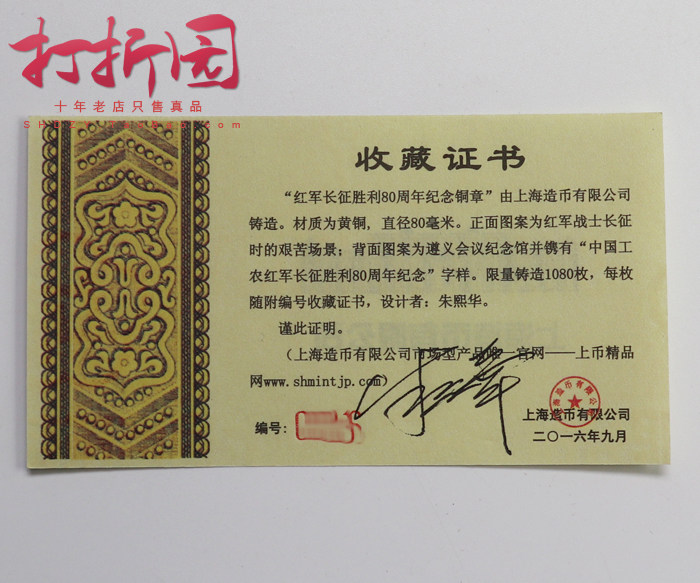 打折园
十年老店只售真品
收藏证书
“红军长征胜利80周年纪念铜章”由上海造币有限公司
铸造。材质为黄铜，直径80毫米。正面图案为红军战士长征
时的艰苦场景；背面图案为遵义会议纪念馆并镌有“中国工
农红军长征胜利80周年纪念”字样。限量铸造1080枚，每枚
随附编号收藏证书，设计者：朱熙华。
谨此证明。
（上海造币有限公司市场型产品唯一官网——上币精品
网www.shmintjp.com）
编号：
上海造币有限公司
二〇一六年九月